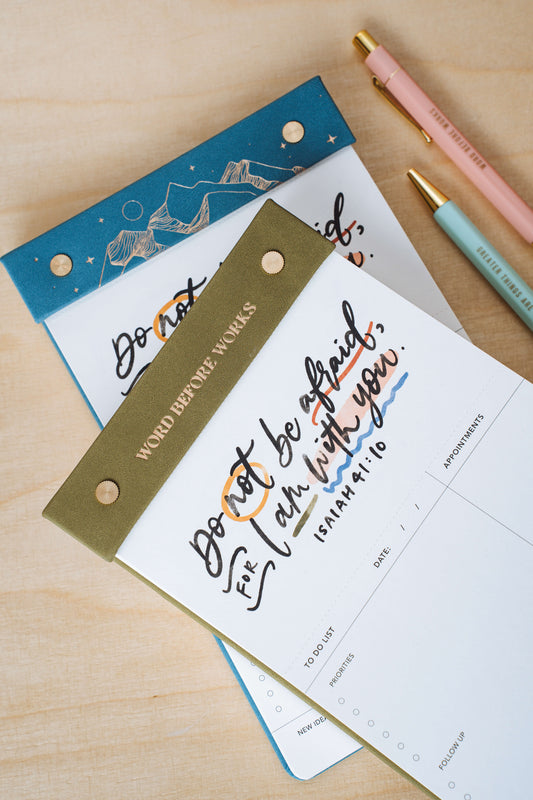 WORD BEFORE WORKS
Do not be afraid,
FOR I am with you.
ISAIAH 41:10
DATE: / /
APPOINTMENTS
TO DO LIST
PRIORITIES
FOLLOW UP
Do not
NEW IDEA
WORD BEFORE WORKS
GREATER THINGS ARE